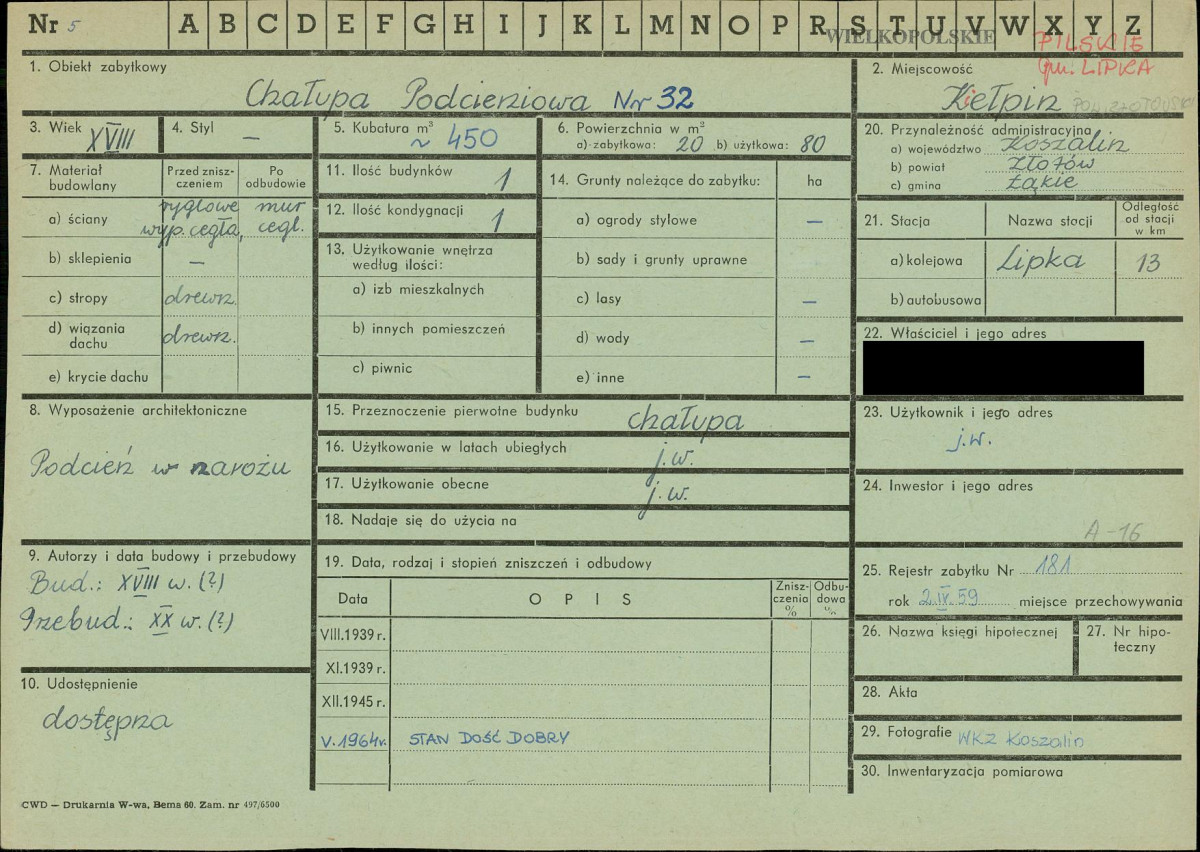 Nr 5 A B C D E F G H I J K L M N O P R S T U V W X Y Z
WIELKOPOLSKIE
PILSKIE
gm. LIPKA
1. Obiekt zabytkowy
Chałupa Podcieniowa Nr 32
2. Miejscowość
Kiełpin POW. ZŁOTOWSKI
3. Wiek XVIII
4. Styl –
5. Kubatura m³
~ 450
6. Powierzchnia w m²
a) zabytkowa: 20 b) użytkowa: 80
20. Przynależność administracyjna
a) województwo Koszalin
b) powiat Złotów
c) gmina Łąkie
7. Materiał budowlany
Przed znisz-
czeniem
Po
odbudowie
a) ściany ryglowe mur
wyp. cegła, cegl.
b) sklepienia –
c) stropy drewn.
d) wiązania
dachu drewn.
e) krycie dachu
11. Ilość budynków 1
12. Ilość kondygnacji 1
13. Użytkowanie wnętrza
według ilości:
a) izb mieszkalnych
b) innych pomieszczeń
c) piwnic
14. Grunty należące do zabytku: ha
a) ogrody stylowe –
b) sady i grunty uprawne
c) lasy –
d) wody –
e) inne –
21. Stacja Nazwa stacji
Odległość
od stacji
w km
a) kolejowa Lipka 13
b) autobusowa
22. Właściciel i jego adres
8. Wyposażenie architektoniczne
Podcień w narożu
15. Przeznaczenie pierwotne budynku chałupa
16. Użytkowanie w latach ubiegłych j.w.
17. Użytkowanie obecne j.w.
18. Nadaje się do użycia na
23. Użytkownik i jego adres
j.w.
24. Inwestor i jego adres
A-16
9. Autorzy i data budowy i przebudowy
Bud.: XVIII w. (?)
Przebud.: XX w. (?)
19. Data, rodzaj i stopień zniszczeń i odbudowy
Data OPIS
Znisz-
czenia
%
Odbu-
dowa
%
VIII.1939 r.
XI.1939 r.
XII.1945 r.
V.1964r. STAN DOŚĆ DOBRY
25. Rejestr zabytku Nr 181
rok 2.IX.59 miejsce przechowywania
26. Nazwa księgi hipotecznej
27. Nr hipo-
teczny
10. Udostępnienie
dostępna
28. Akta
29. Fotografie WKZ Koszalin
30. Inwentaryzacja pomiarowa
CWD — Drukarnia W-wa, Bema 60. Zam. nr 497/6500